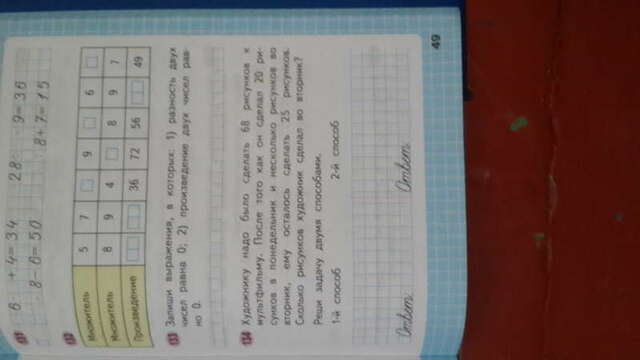 131 6 + 4 = 34 28 9 = 36
8 - 6 = 50 8 + 7 = 15
132
Множитель 5 7 9 6
Множитель 8 9 4 8 9 7
Произведение 36 72 56 49
133 Запиши выражения, в которых: 1) разность двух
чисел равна 0; 2) произведение двух чисел рав-
но 0.
134 Художнику надо было сделать 68 рисунков к
мультфильму. После того как он сделал 20 ри-
сунков в понедельник и несколько рисунков во
вторник, ему осталось сделать 25 рисунков.
Сколько рисунков художник сделал во вторник?
Реши задачу двумя способами.
1-й способ 2-й способ
Ответ: Ответ:
49